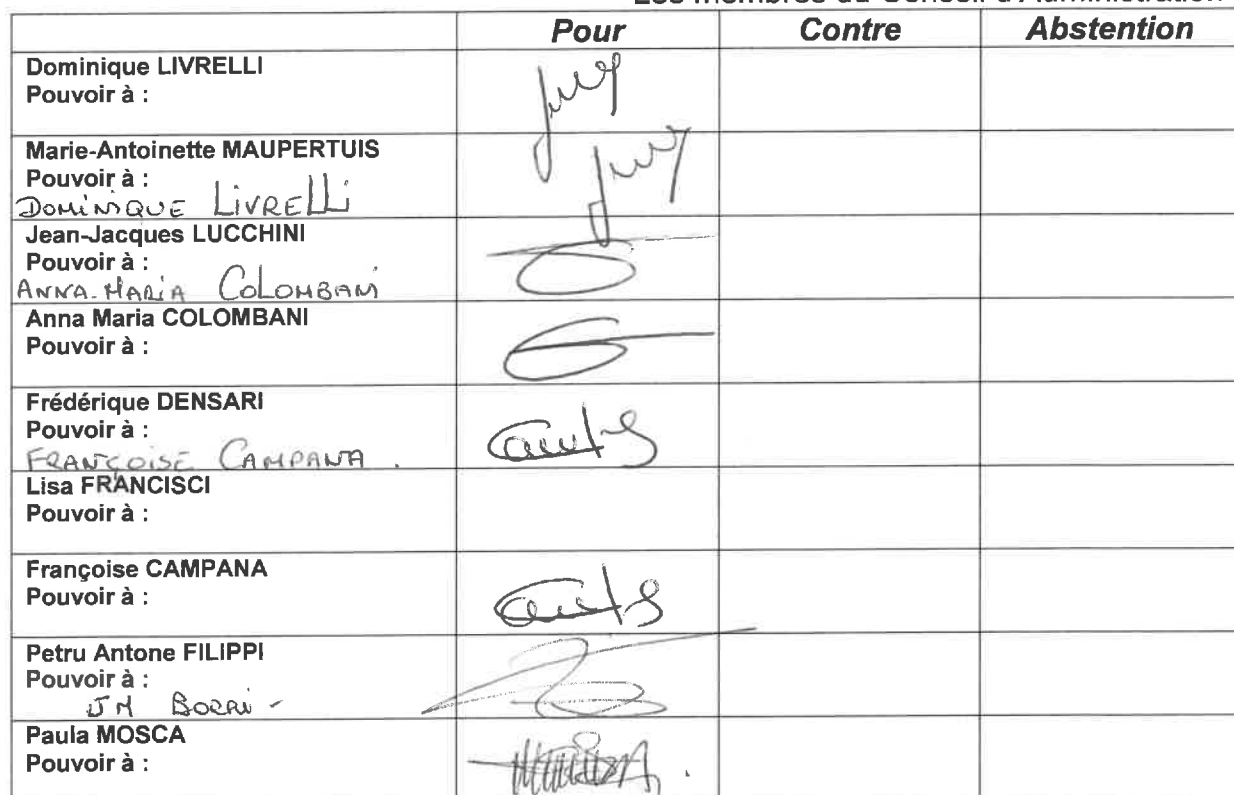 Les membres du Conseil d'Administration
Pour Contre Abstention
Dominique LIVRELLI
Pouvoir à :
Marie-Antoinette MAUPERTUIS
Pouvoir à :
DOMINIQUE LIVRELLI
Jean-Jacques LUCCHINI
Pouvoir à :
ANNA-MARIA COLOMBANI
Anna Maria COLOMBANI
Pouvoir à :
Frédérique DENSARI
Pouvoir à :
FRANÇOISE CAMPANA.
Lisa FRANCISCI
Pouvoir à :
Françoise CAMPANA
Pouvoir à :
Petru Antone FILIPPI
Pouvoir à :
JM
Paula MOSCA
Pouvoir à :